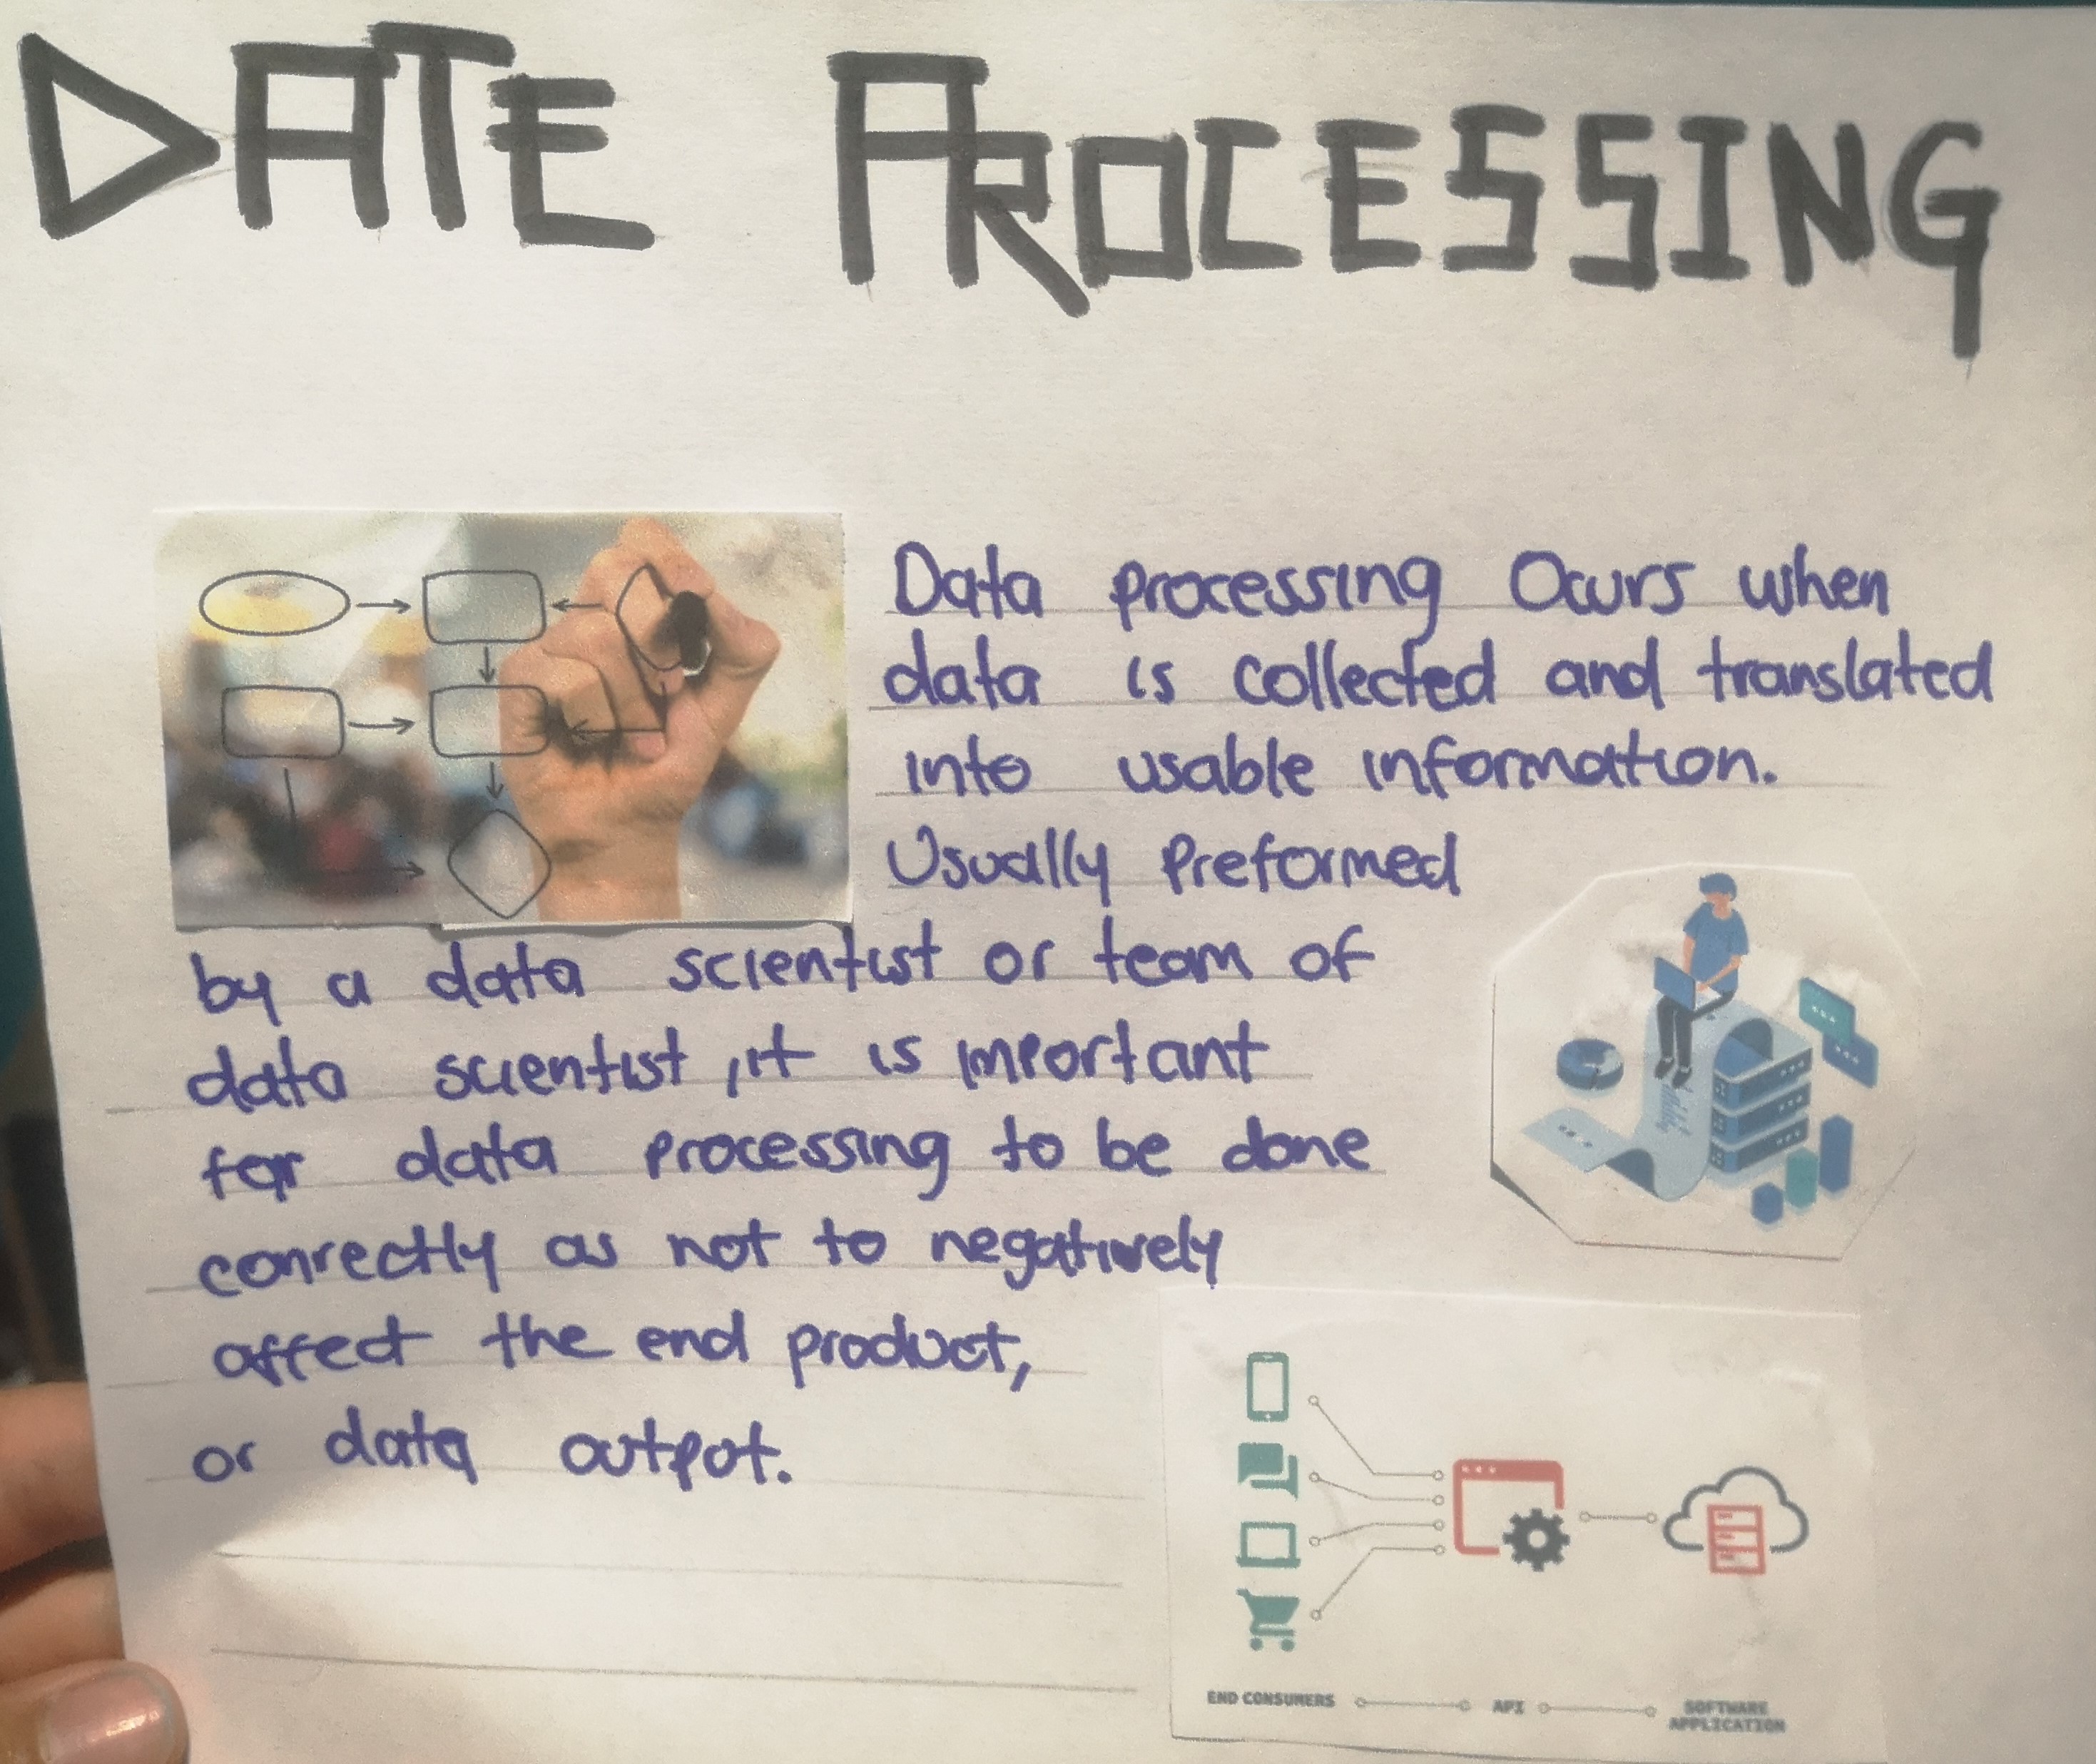 DATE PROCESSING
Data processing Ocurs when
data is collected and translated
into usable information.
Usually Preformed
by a data scientist or team of
data scientist, it is important
for data processing to be done
conrectly as not to negatively
affect the end product,
or data outpot.
END CONSUMERS API SOFTWARE
APPLICATION